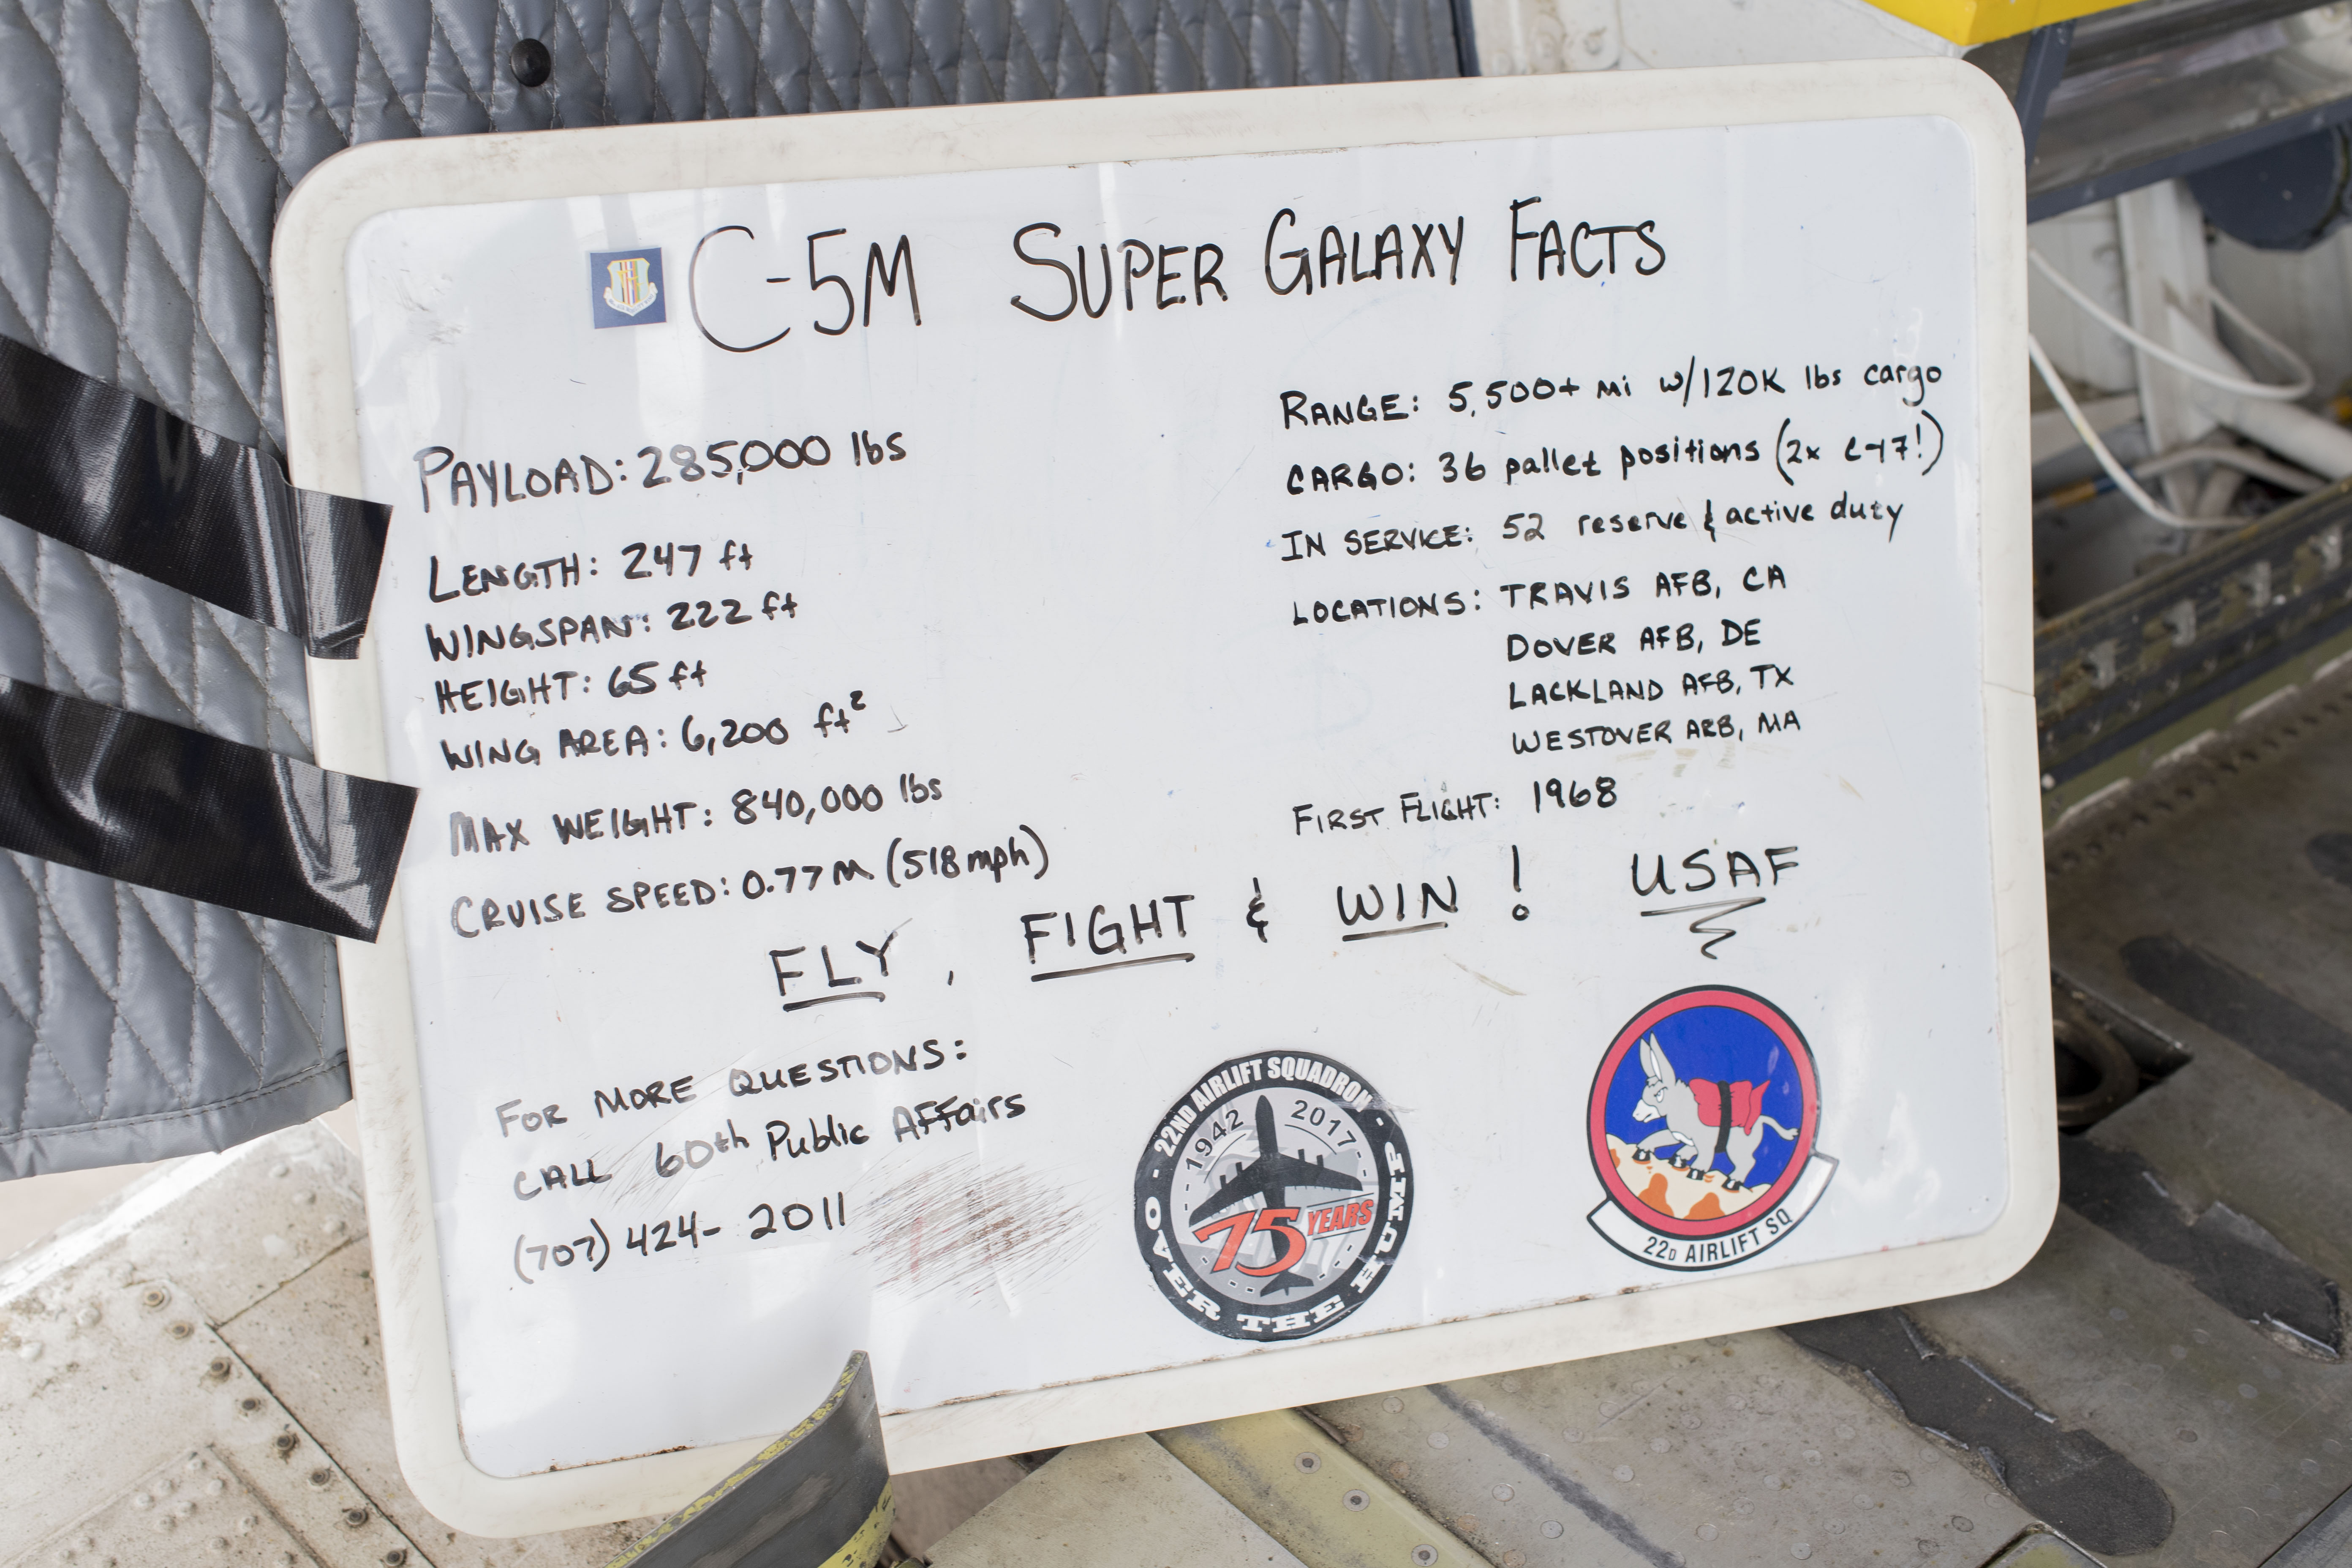 C-5M SUPER GALAXY FACTS
PAYLOAD: 285,000 lbs
LENGTH: 247 ft
WINGSPAN: 222 ft
HEIGHT: 65 ft
WING AREA: 6,200 ft²
MAX WEIGHT: 840,000 lbs
CRUISE SPEED: 0.77M (518 mph)
RANGE: 5,500+ mi w/120K lbs cargo
CARGO: 36 pallet positions (2x C-17!)
IN SERVICE: 52 reserve & active duty
LOCATIONS: TRAVIS AFB, CA
DOVER AFB, DE
LACKLAND AFB, TX
WESTOVER ARB, MA
FIRST FLIGHT: 1968
FLY, FIGHT & WIN! USAF
FOR MORE QUESTIONS:
CALL 60th Public Affairs
(707) 424-2011
22ND AIRLIFT SQUADRON
1942 2017
75 YEARS
OVER THE HUMP
22D AIRLIFT SQ